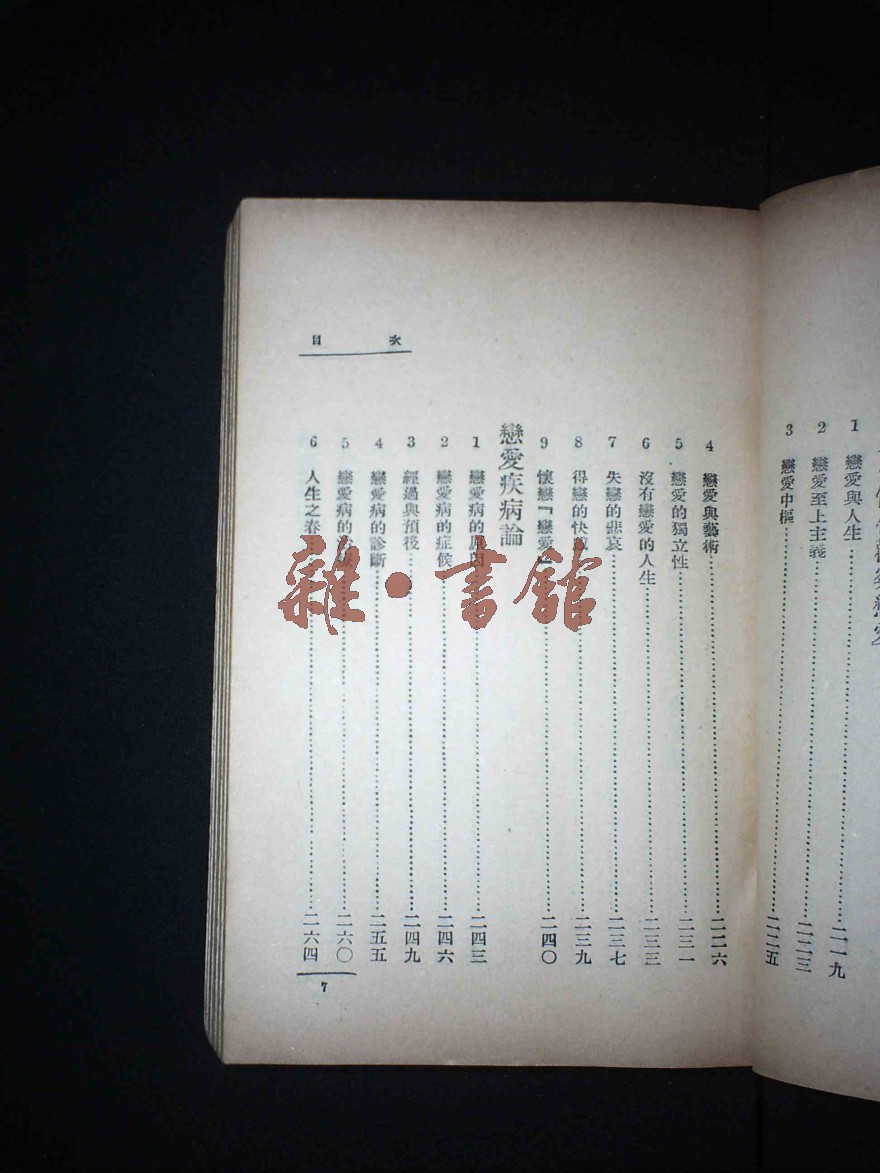 1 戀愛與人生……二一九
2 戀愛至上主義……二二三
3 戀愛中樞……二二五
目次
4 戀愛與藝術……二二六
5 戀愛的獨立性……二三一
6 沒有戀愛的人生……二三三
7 失戀的悲哀……二三七
8 得戀的快……二三九
9 懷戀『戀愛……二四〇
戀愛疾病論
1 戀愛病的原因……二四三
2 戀愛病的症候……二四六
3 經過與預後……二四九
4 戀愛病的診斷……二五五
5 戀愛病的……二六〇
6 人生之春……二六四
7
雜·書館